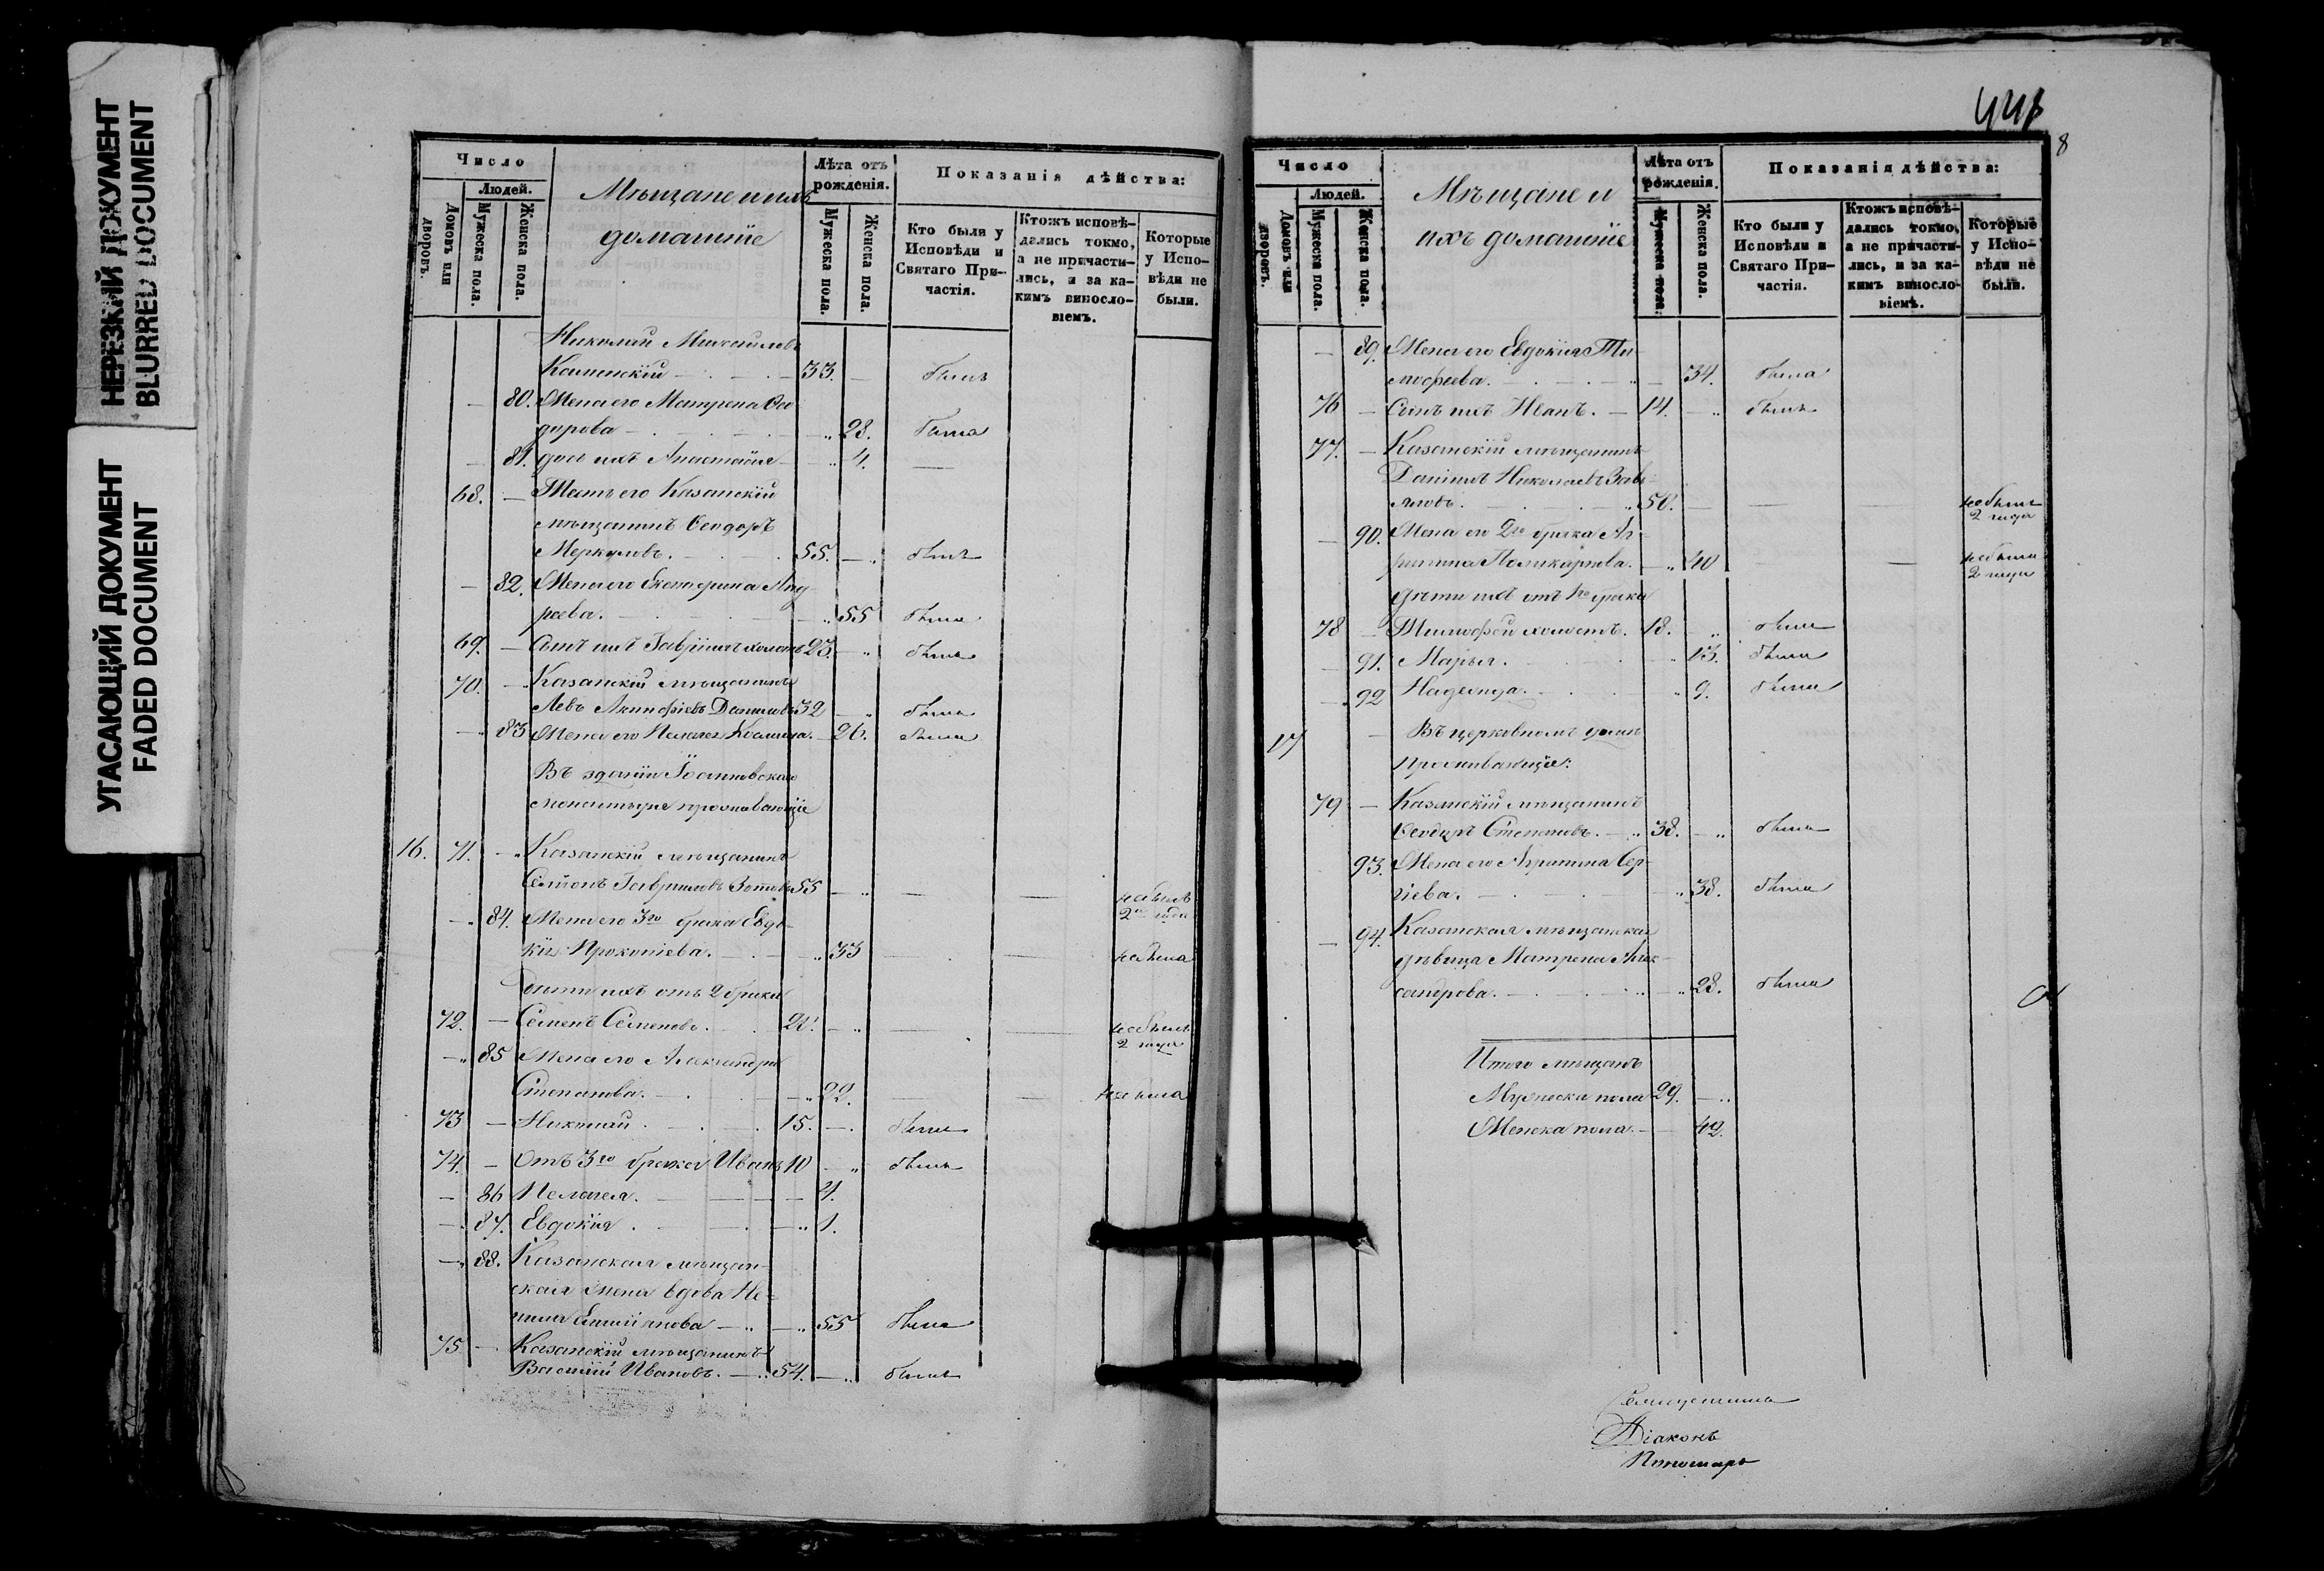 НЕРЕЗКИЙ ДОКУМЕНТ
BLURRED DOCUMENT
УГАСАЮЩИЙ ДОКУМЕНТ
FADED DOCUMENT
Число
Людей.
Домовъ или дворовъ.
Мужеска пола.
Женска пола.
Мѣщане и ихъ
домашніе
Лѣта отъ рожденія.
Мужеска пола.
Женска пола.
Показанія дѣйства:
Кто были у Исповѣди и Святаго Причастія.
Ктожъ исповѣдались токмо, а не причастились, и за какимъ винословіемъ.
Которые у Исповѣди не были.
Николай Михайловъ
Каменскій 33. — былъ
— 80. Жена его Матрена Ѳео
дорова — 28. была
— 81. дочь ихъ Анастасія — 4. —
68. — Тесть его Казанскій
мѣщанинъ Ѳеодоръ
Меркуловъ. 55. — былъ
— 82. Жена его Екатерина Анд
реева. — 55 была
69. — Сынъ ихъ Гавріилъ холостъ 23. — былъ
70. — Казанскій мѣщанинъ
Левъ Акинфіевъ Даниловъ 32 — былъ
— 83 Жена его Пелагея — 26. была
Въ зданіи Іоанновскаго
монастыря проживающіе
16. 71. — Казанскій мѣщанинъ
Семенъ Гавриловъ Зотовъ 55 — — — не былъ
2 года
— 84. Жена его 3го брака Евдо-
кія Прокопіева. — 33 — — не была
Дѣти ихъ отъ 2 брака
72. — Семенъ Семеновъ. 20. — — — не былъ
2 года
— 85 Жена его Александра
Степанова. — 22. — не была
73 — Николай 15. — былъ
74. — Отъ 3го брака Иванъ 10 — былъ
— 86 Пелагея. — 4.
— 87. Евдокія — 1.
— 88. Казанская мѣщан-
ская жена вдова Не-
нила Емиліянова — 55 была
75 — Казанскій мѣщанинъ
Василій Ивановъ. — 54. — былъ
8
Число
Людей.
Домовъ или дворовъ.
Мужеска пола.
Женска пола.
Мѣщане и
ихъ домашніе
Лѣта отъ рожденія.
Мужеска пола.
Женска пола.
Показанія дѣйства:
Кто были у Исповѣди и Святаго Причастія.
Ктожъ исповѣдались токмо, а не причастились, и за какимъ винословіемъ.
Которые у Исповѣди не были.
— 89. Жена его Евдокія Ти-
мофеева. — 34. была
76 — Сынъ ихъ Иванъ. — 14. — былъ
77. — Казанскій мѣщанинъ
Даніилъ Николаевъ Завь-
яловъ. 50. — — — не былъ
2 года
— 90. Жена его 2го брака Аг-
рипина Поликарпова. — 40 — — не была
2 года
дѣти ихъ отъ 1го брака
78 — Тимофей холостъ. 18. — былъ
— 91. Марья. 13. была
— 92 Надежда. 9. была
17 — Въ церковномъ домѣ
проживающіе:
79 — Казанскій мѣщанинъ
Ѳеодоръ Степановъ. — 38. — былъ
93. Жена его Агрипина Сер-
гіева. — 38. была
— 94. Казанская мѣщанская
дѣвица Матрена Алек-
сандрова. — 28. была
Итого мѣщанъ
Мужеска пола 29. —
Женска пола. — 42.
Діаконъ
Пономарь